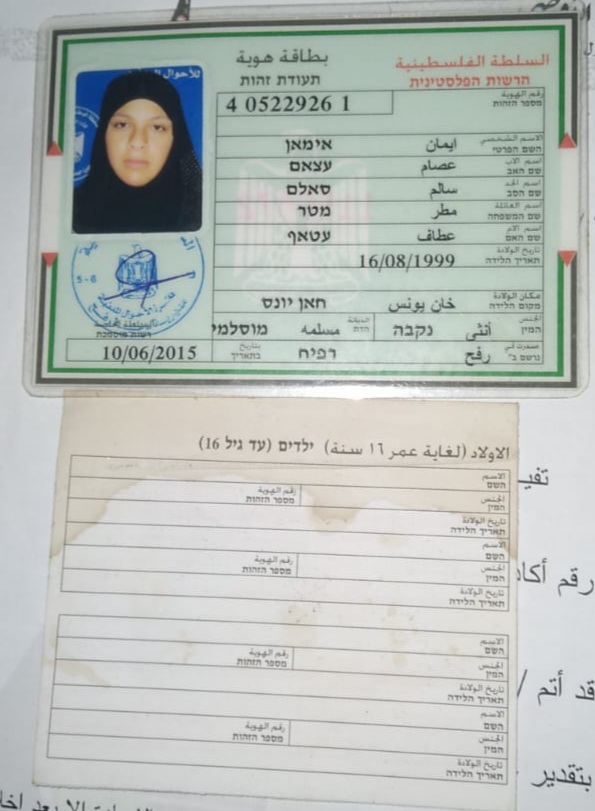 السلطة الفلسطينية
הרשות הפלסטינית
بطاقة هوية
תעודת זהות
رقم الهوية
מספר הזהות
4 0522926 1
الاسم الشخصي
השם הפרטי
ايمان אימאן
اسم الاب
שם האב
عصام עצאם
اسم الجد
שם הסב
سالم סאלם
اسم العائلة
שם המשפחה
مطر מטר
اسم الام
שם האם
عطاف עטאף
تاريخ الولادة
תאריך הלידה
16/08/1999
مكان الولادة
מקום הלידה
خان يونس חאן יונס
الجنس
המין
أنثى נקבה
الديانة
הדת
مسلمة מוסלמי
صدرت في
נרשם ב"
رفح רפיח
بتاريخ
בתאריך
10/06/2015
الاولاد (لغاية عمر ١٦ سنة) ילדים (עד גיל 16)
الاسم
השם
الجنس
המין
رقم الهوية
מספר הזהות
تاريخ الولادة
תאריך הלידה
الاسم
השם
الجنس
המין
رقم الهوية
מספר הזהות
تاريخ الولادة
תאריך הלידה
الاسم
השם
الجنس
המין
رقم الهوية
מספר הזהות
تاريخ الولادة
תאריך הלידה
الاسم
השם
الجنس
המין
رقم الهوية
מספר הזהות
تاريخ الولادة
תאריך הלידה
قد أتم /
بتقدير